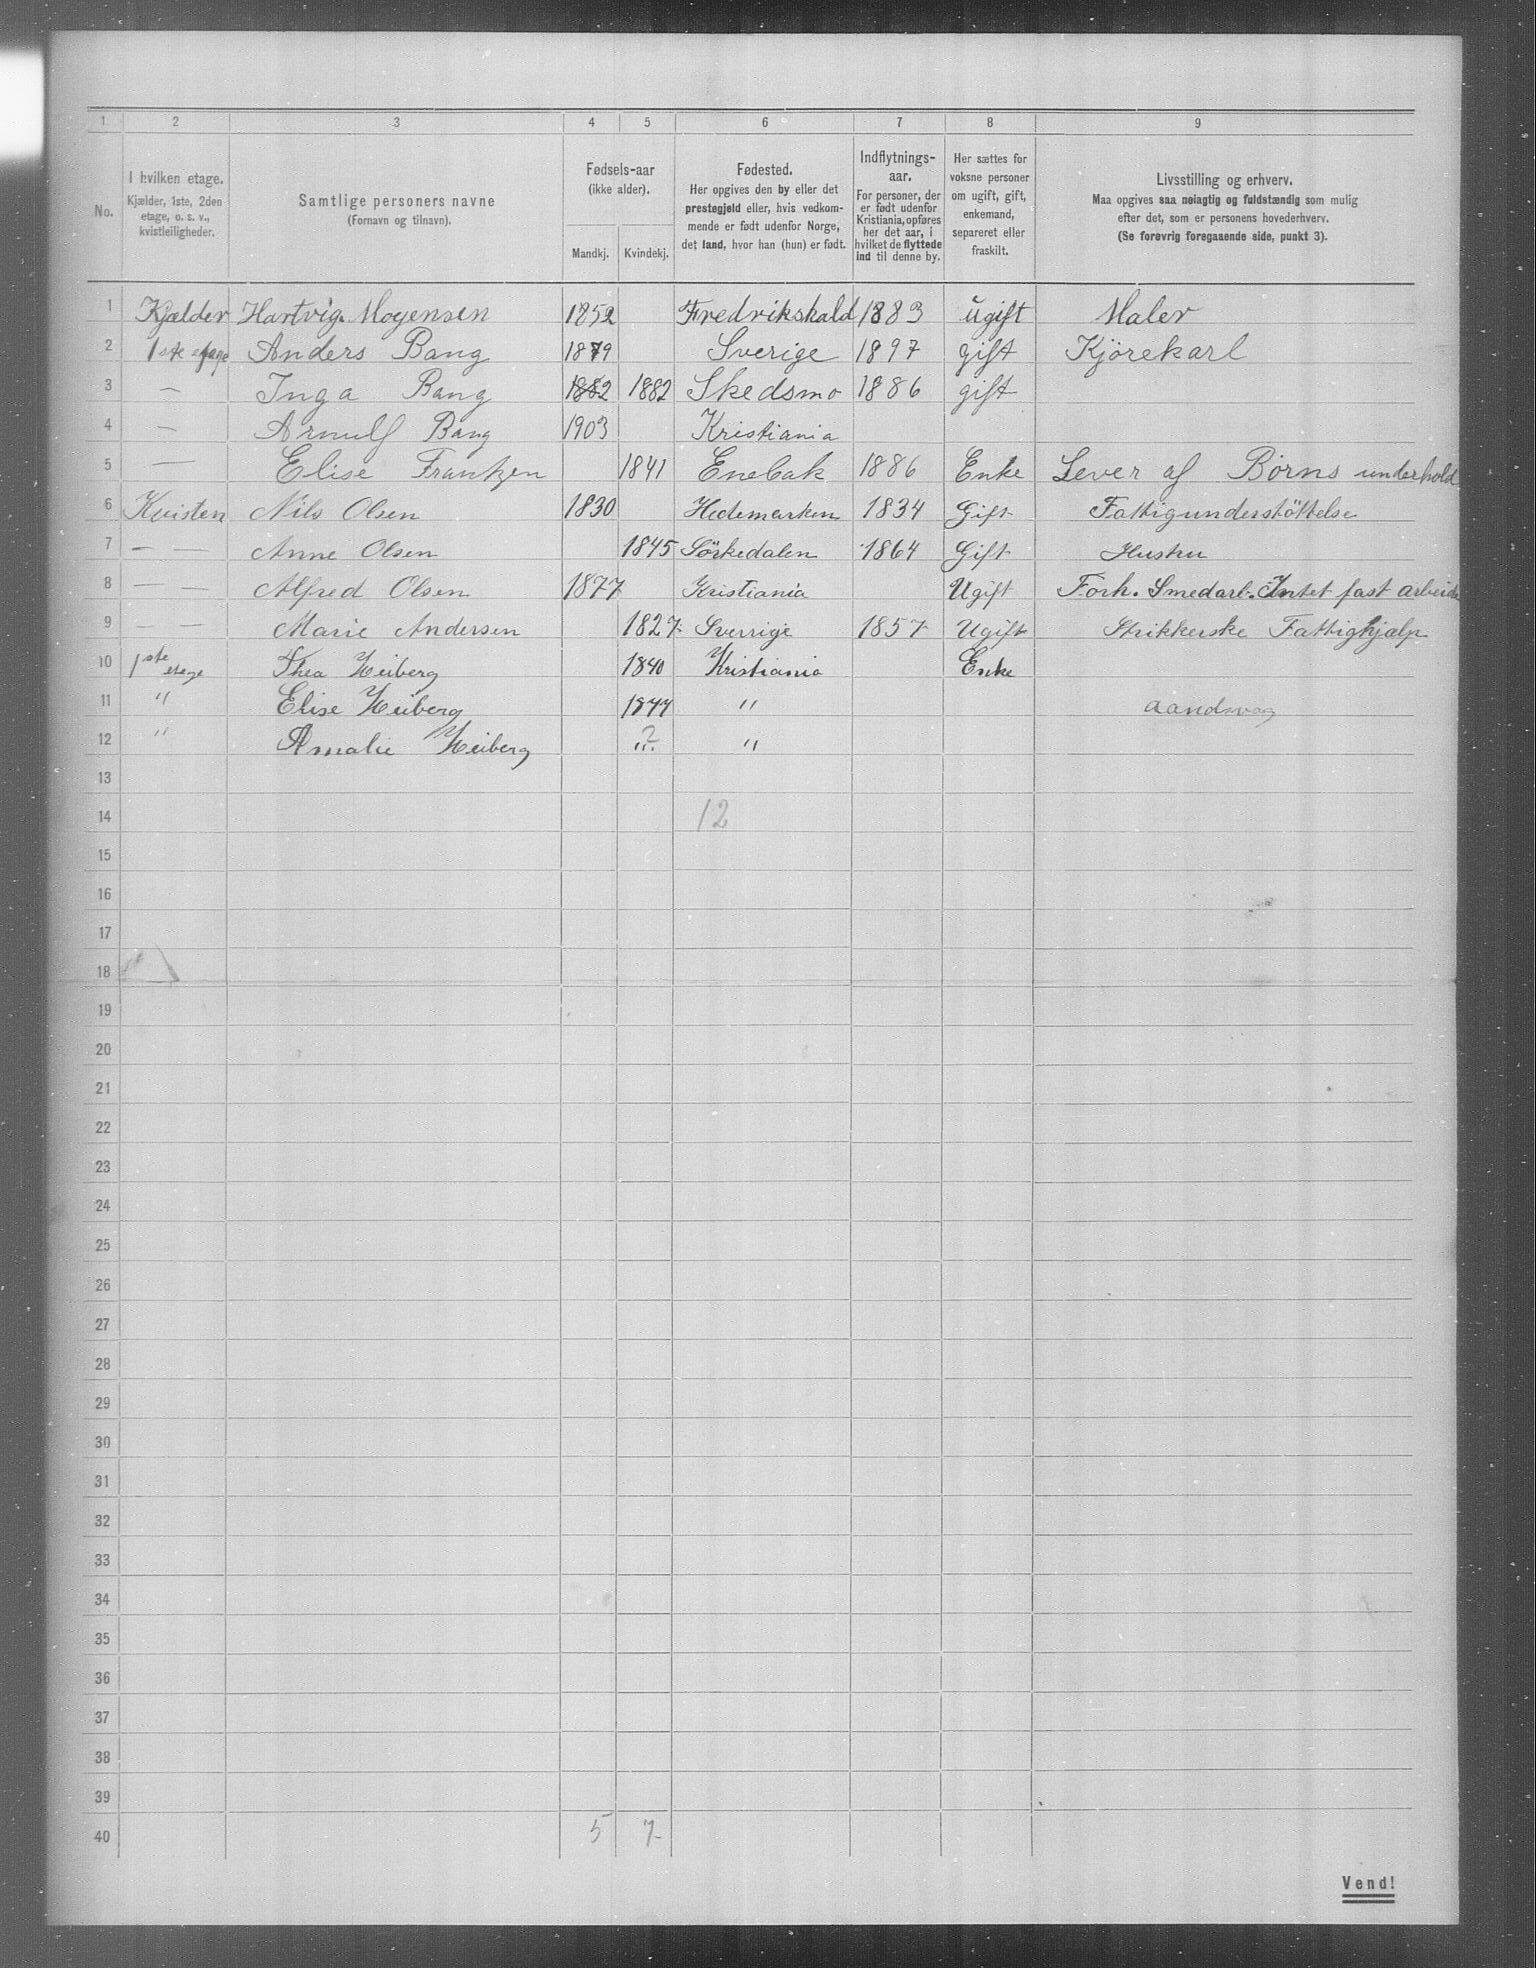 1 2 3 4 5 6 7 8 9
No.
I hvilken etage.
Kjælder, 1ste, 2den
etage, o. s. v.,
kvistleiligheder.
Samtlige personers navne
(Fornavn og tilnavn).
Fødsels-aar
(ikke alder).
Mandkj. Kvindekj.
Fødested.
Her opgives den by eller det
prestegjeld eller, hvis vedkom-
mende er født udenfor Norge,
det land, hvor han (hun) er født.
Indflytnings-
aar.
For personer, der
er født udenfor
Kristiania, opføres
her det aar, i
hvilket de flyttede
ind til denne by.
Her sættes for
voksne personer
om ugift, gift,
enkemand,
separeret eller
fraskilt.
Livsstilling og erhverv.
Maa opgives saa nøiagtig og fuldstændig som mulig
efter det, som er personens hovederhverv.
(Se forøvrig foregaaende side, punkt 3).
1 Kjælder Hartvig Mogensen 1852 Fredrikshald 1883 ugift Maler
2 1ste etage Anders Bang 1879 Sverige 1897 gift Kjørekarl
3 — Inga Bang 1882 1882 Skedsmo 1886 gift
4 — Arnulf Bang 1903 Kristiania
5 — Elise Frantzen 1841 Enebak 1886 Enke Lever af Børns underhold
6 Kvisten Nils Olsen 1830 Hedemarken 1834 Gift Fattigunderstöttelse
7 — — Anne Olsen 1845 Sörkedalen 1864 Gift Hustru
8 — — Alfred Olsen 1877 Kristiania Ugift Forh. Smedarb. Intet fast arbeide
9 — — Marie Andersen 1827 Sverrige 1857 Ugift Strikkerske Fattighjælp
10 1ste etage Thea Heiberg 1840 Kristiania Enke
11 " Elise Heiberg 1844 " aandsvag
12 " Amalie Heiberg ? "
13
14 12
15
16
17
18
19
20
21
22
23
24
25
26
27
28
29
30
31
32
33
34
35
36
37
38
39
40 5 7
Vend!